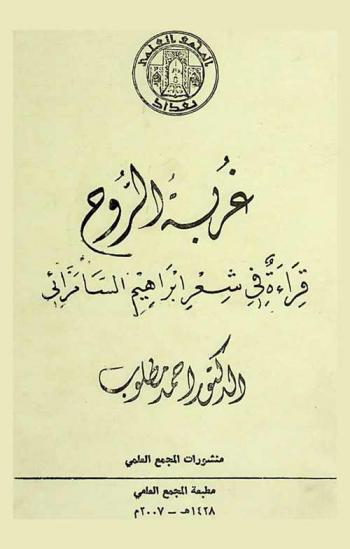 المجمع العلمي
بغداد
غُربةُ الرُّوح
قِرَاءَةٌ فِي شِعْرِ ابْرَاهِيْم السَّامَرَّائي
الدكتور احمد مطلوب
منشورات المجمع العلمي
مطبعة المجمع العلمي
١٤٢٨هـ - ٢٠٠٧م